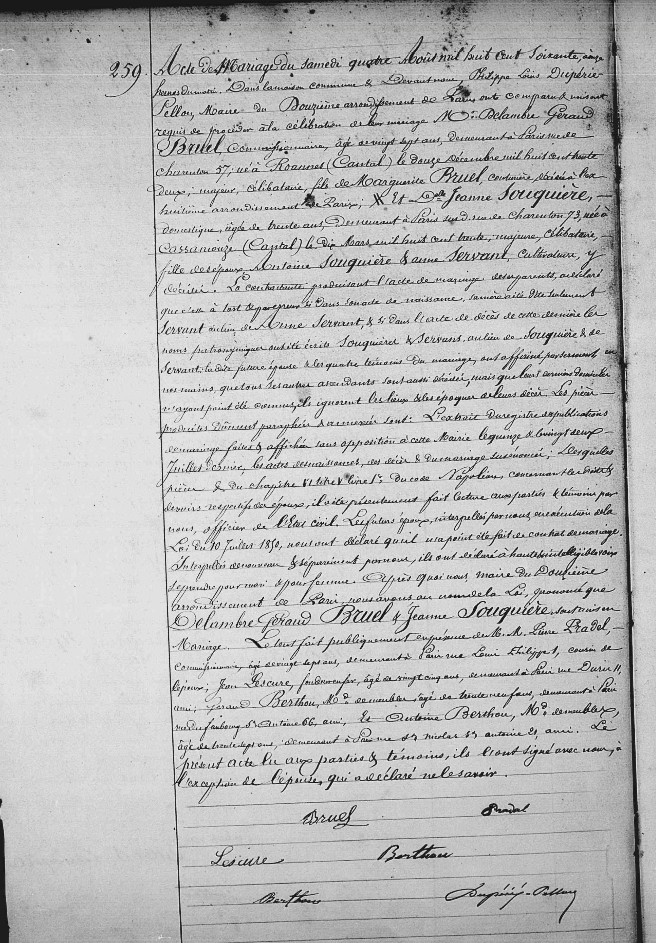 259. Acte de Mariage du Samedi quatre Août mil huit cent soixante, onze
heures du matin. Dans la maison commune & devant nous, Philippe Louis Dupérié-
Pellou, Maire du Douzième arrondissement de Paris ont comparu & nous ont
requis de procéder à la célébration de leur mariage Mr. Delambre Géraud
Bruel, Commissionnaire, âgé de vingt sept ans, demeurant à Paris rue de
Charenton 57; né à Roannes (Cantal) le douze Décembre mil huit cent trente
deux; majeur, célibataire, fils de Marguerite Bruel, couturière décédée à
huitième arrondissement de Paris; Et Delle Jeanne Souquière,
domestique, âgée de trente ans, demeurant à Paris susd. rue de Charenton 73, née à
Cassaniouze (Cantal) le dix Mars, mil huit cent trente, majeure, célibataire,
fille des époux Antoine Souquière & anne Servant, cultivateurs, y
décédés. La contractante produisant l'acte de mariage de ses parents, a déclaré
que c'est à tort & par erreur si dans son acte de naissance, sa mère a été dite seulement
Servant au lieu de Anne Servant, & si dans l'acte de décès de cette dernière les
noms patronymiques ont été écrits Souquières & Servans, au lieu de Souquière & de
Servant; ladite future épouse & les quatre témoins du mariage, ont affirmé par serment en
nos mains, que tous les autres ascendants sont aussi décédés, mais que leurs derniers domiciles
n'ayant point été connus, ils ignorent les lieux & les époques de leurs décès. Les pièces
produites dûment paraphées & annexées sont: L'extrait du registre des publications
de mariage faites & affichées sans opposition à cette Mairie les quinze & vingt deux
Juillet dernier, les actes de naissances, de décès & du mariage susénoncé; Desquelles
pièces & du chapitre VI titre V livre 1er du code Napoléon, concernant les droits &
devoirs respectifs des époux, il a été présentement fait lecture aux parties & témoins par
nous, officier de l'Etat civil. Les futurs époux, interpellés par nous, en exécution de la
Loi du 10 Juillet 1850, nous ont déclaré qu'il n'a point été fait de contrat de mariage.
Interpellés de nouveau & séparément par nous, ils ont déclaré à haute & intelligible voix
se prendre pour mari & pour femme. Après quoi nous maire du Douzième
arrondissement de Paris, nous avons au nom de la Loi, prononcé que
Delambre Géraud Bruel & Jeanne Souquière, sont unis en
Mariage. Le tout fait publiquement en présence de M. M. Pierre Pradel,
commissionnaire, âgé de vingt sept ans, demeurant à Paris rue Louis Philippe 1, cousin de
l'époux; Jean Lescure, âgé de vingt cinq ans, demeurant à Paris rue Duris 11,
ami; Géraud Berthou, Md. de meubles, âgé de trente neuf ans, demeurant à Paris
rue du faubourg St Antoine 66 ami, Et Antoine Berthou, Md. de meubles,
âgé de trente sept ans, demeurant à Paris rue St nicolas St antoine 21, ami. Le
présent acte lu aux parties & témoins, ils l'ont signé avec nous, à
l'exception de l'épouse, qui a déclaré ne le savoir.
Bruel Pradel
Lescure Berthou
Berthou Dupérié-Pellou